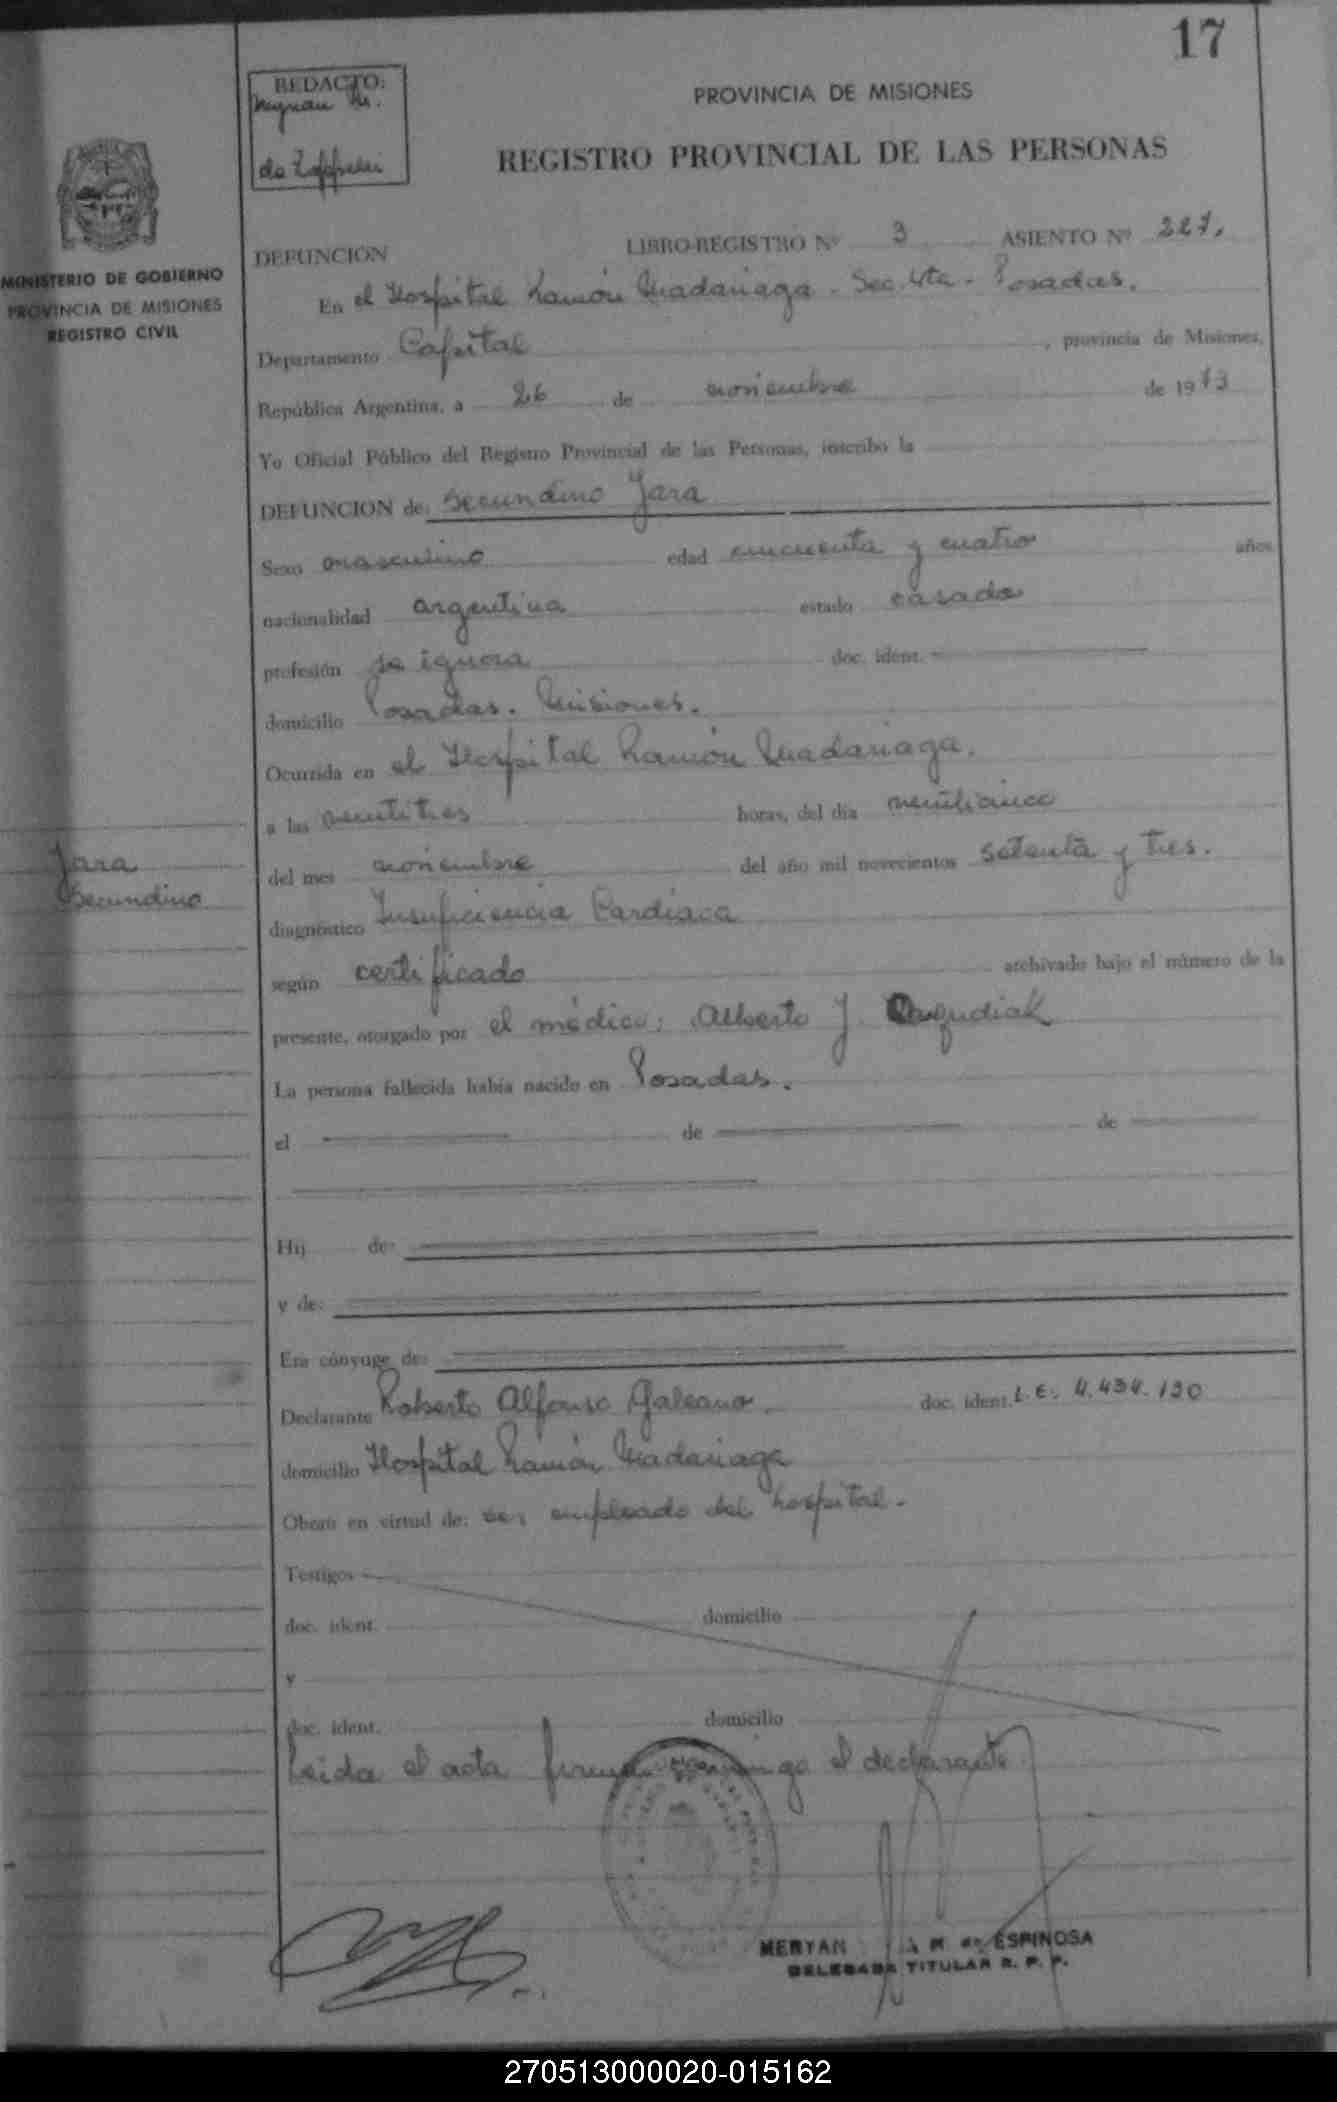 17
REDACTO:
de
PROVINCIA DE MISIONES
REGISTRO PROVINCIAL DE LAS PERSONAS
MINISTERIO DE GOBIERNO
PROVINCIA DE MISIONES
REGISTRO CIVIL
DEFUNCION LIBRO-REGISTRO Nº 3 ASIENTO Nº 227.
En el Hospital Ramón Madariaga - Sec. 4ta - Posadas.
Departamento Capital, provincia de Misiones,
República Argentina, a 26 de noviembre de 1973
Yo Oficial Público del Registro Provincial de las Personas, inscribo la
DEFUNCION de: Secundino Jara
Sexo masculino edad cincuenta y cuatro años
nacionalidad argentina estado casado
profesión se ignora doc. ident. —
domicilio Posadas. Misiones.
Ocurrida en el Hospital Ramón Madariaga.
a las veintitres horas, del día veinticinco
Jara
Secundino
del mes noviembre del año mil novecientos setenta y tres.
diagnóstico Insuficiencia Cardíaca
según certificado archivado bajo el número de la
presente, otorgado por el médico: Alberto J.
La persona fallecida había nacido en Posadas.
el — de — de —
Hij de:
y de:
Era cónyuge de:
Declarante Roberto Alfonso Galeano. doc. ident. L.E. 4.434.130
domicilio Hospital Ramón Madariaga
Obra en virtud de: ser empleado del hospital.
Testigos
doc. ident. domicilio
y
doc. ident. domicilio
Leida el acta el declarante
MERYAN ESPINOSA
DELEGADA TITULAR R. P. P.
270513000020-015162